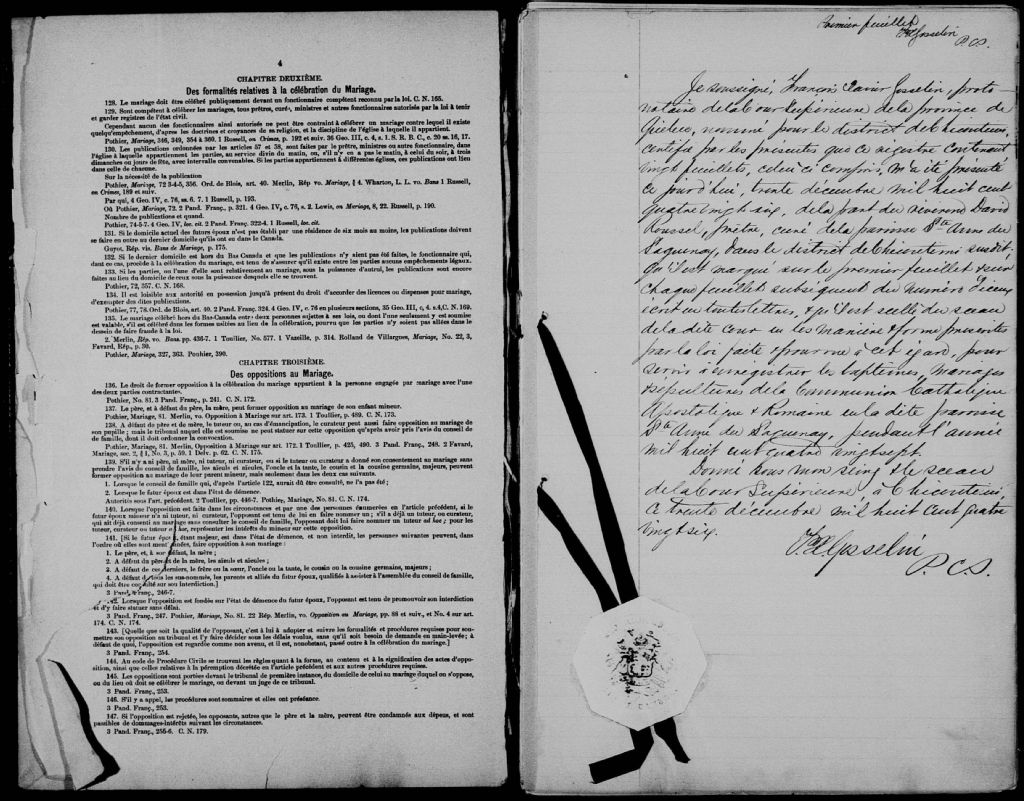 4
CHAPITRE DEUXIÈME.
Des formalités relatives à la célébration du Mariage.
128. Le mariage doit être célébré publiquement devant un fonctionnaire compétent reconnu par la loi. C. N. 165.
129. Sont compétents à célébrer les mariages, tous prêtres, curé, ministres et autres fonctionnaires autorisés par la loi à tenir
et garder registres de l'état civil.
Cependant aucun des fonctionnaires ainsi autorisés ne peut être contraint à célébrer un mariage contre lequel il existe
quelqu'empêchement, d'après les doctrines et croyances de sa religion, et la discipline de l'église à laquelle il appartient.
Pothier, Mariage, 346, 349, 354 à 360. 1 Russell, on Crimes, p. 192 et suiv. 36 Geo. III. c. 4, s. 1. S. R. B. C., c. 20 ss. 16, 17.
130. Les publications ordonnées par les articles 57 et 58, sont faites par le prêtre, ministre ou autre fonctionnaire, dans
l'église à laquelle appartiennent les parties, au service divin du matin, ou, s'il n'y en a pas le matin, à celui du soir, à trois
dimanches ou jours de fête, avec intervalle convenables. Si les parties appartiennent à différentes églises, ces publications ont lieu
dans celle de chacune.
Sur la nécessité de la publication
Pothier, Mariage, 72 3-4-5, 356. Ord. de Blois, art. 40. Merlin, Rép vo. Mariage, § 4. Wharton, L. L. vo. Bans 1 Russell,
on Crimes, 189 et suiv.
Par qui, 4 Geo. IV, c. 76, ss. 6. 7. 1 Russell, p. 193.
Où Pothier, Mariage, 72. 2 Pand. Franç. p. 321. 4 Geo. IV, c. 76, s. 2. Lewis, on Mariage, 8, 22. Russell, p. 190.
Nombre de publications et quand.
Pothier, 74-5-7. 4 Geo. IV, loc. cit. 2 Pand. Franç. 322-4. 1 Russell, loc. cit.
131. Si le domicile actuel des futurs époux n'est pas établi par une résidence de six mois au moins, les publications doivent
se faire en outre au dernier domicile qu'ils ont eu dans le Canada.
Guyot, Rép. vis. Bans de Mariage, p. 175.
132. Si le dernier domicile est hors du Bas Canada et que les publications n'y aient pas été faites, le fonctionnaire qui,
dant ce cas, procède à la célébration du mariage, est tenu de s'assurer qu'il existe entre les parties aucuns empêchements légaux.
133. Si les parties, ou l'une d'elle sont relativement au mariage, sous la puissance d'autrui, les publications sont encore
faites au lieu du domicile de ceux sous la puissance desquels elle se trouvent.
Pothier, 72, 357. C. N. 168.
134. Il est loisible aux autorité en possession jusqu'à présent du droit d'accorder des licences ou dispenses pour mariage,
d'exempter des dites publications.
Pothier, 77, 78. Ord. de Blois, art. 40. 2 Pand. Franç. 324. 4 Geo. IV, c. 76 en plusieurs sections, 35 Geo. III, c. 4, s.4, C. N. 169.
135. Le mariage célébré hors du Bas-Canada entre deux personnes sujettes à ses lois, ou dont l'une seulement y est soumise
est valable, s'il est célébré dans les formes usitées au lieu de la célébration, pourvu que les parties n'y soient pas allées dans le
dessein de faire fraude à la loi.
2. Merlin, Rép. vo. Bans. pp. 436-7. 1 Toullier, No. 577. 1 Vazeille, p. 314. Rolland de Villargues, Mariage, No. 22, 3,
Favard, Rép., p. 30.
Pothier, Mariage, 327, 363. Pouhier, 390.
CHAPITRE TROISIÈME.
Des oppositions au Mariage.
136. Le droit de former opposition à la célébration du mariage appartient à la personne engagée par mariage avec l'une
des deux parties contractantes.
Pothier, No. 81. 3 Pand. Franç., p. 241. C. N. 172.
137. Le père, et à défaut du père, la mère, peut former opposition au mariage de son enfant mineur.
Pothier, Mariage, 81. Merlin, vo. Opposition à Mariage sur art. 173. 1 Toullier, p. 489. C. N. 173.
138. A défaut de père et de mère, le tuteur ou, au cas d'émancipation, le curateur peut aussi faire opposition au mariage de
son pupille ; mais le tribunal auquel elle est soumise ne peut statuer sur cette opposition qu'après avoir pris l'avis du conseil de
de famille, dont il doit ordonner la convocation.
Pothier, Mariage, 81, Merlin, Opposition à Mariage sur art. 172. 1 Toullier, p. 425, 490. 3 Pand. Franç., 248. 2 Favard,
Mariage, sec. 2, § 1, No. 3, p. 59. 1 Delv. p. 62. C. N. 175.
139. S'il n'y a ni père, ni mère, ni tuteur, ni curateur, ou si le tuteur ou curateur a donné son consentement au mariage sans
prendre l'avis du conseil de famille, les aïeuls et aïeules, l'oncle et la tante, le cousin et la cousine germains, majeurs, peuvent
former opposition au mariage de leur parent mineur, mais seulement dans les deux cas suivants.
1. Lorsque le conseil de famille qui, d'après l'article 122, aurait dû être consulté, ne l'a pas été;
2. Lorsque le futur époux est dans l'état de démence.
Autorités sous l'art. précédent. 2 Toullier, pp. 446-7. Pothier, Mariage, No. 81. C. N. 174.
140. Lorsque l'opposition est faite dans les circonstances et par une des personnes énumérées en l'article précédent, si le
futur époux mineur n'a ni tuteur, ni curateur, l'opposant est tenu de lui en faire nommer un ; s'il a déjà un tuteur, ou curateur,
qui ait déjà consenti au mariage sans consulter le conseil de famille, l'opposant doit lui faire nommer un tuteur ad hoc ; pour les
tuteur, curateur ou tuteur ad hoc, représenter les intérêts du mineur sur cette opposition.
141. [Si le futur époux, étant majeur, est dans l'état de démence, et non interdit, les personnes suivantes peuvent, dans
l'ordre où elles sont mentionnées, faire opposition à son mariage :
1. Le père, et, à son défaut, la mère ;
2. A défaut du père et de la mère, les aïeuls et aïeules ;
3. A défaut de ces derniers, le frère ou la sœur, l'oncle ou la tante, le cousin ou la cousine germains, majeurs ;
4. A défaut de tous les sus-nommés, les parents et alliés du futur époux, qualifiés à assister à l'assemblée du conseil de famille,
qui doit être consulté sur son interdiction.]
3 Pand. Franç., 246-7.
142. Lorsque l'opposition est fondée sur l'état de démence du futur époux, l'opposant est tenu de promouvoir son interdiction
et d'y faire statuer sans délai.
3 Pand. Franç., 247. Pothier, Mariage, No. 81. 22 Rép. Merlin, vo. Opposition au Mariage, pp. 88 et suiv., et No. 4 sur art.
174. C. N. 174.
143. [Quelle que soit la qualité de l'opposant, c'est à lui à adopter et suivre les formalités et procédures requises pour sou-
mettre son opposition au tribunal et l'y faire décider sous les délais voulus, sans qu'il soit besoin de demande en main-levée ; à
défaut de quoi, l'opposition est regardée comme non avenu, et il est, nonobstant, passé outre à la célébration du mariage.]
3 Pand. Franç., 254.
144. Au code de Procédure Civile se trouvent les règles quant à la forme, au contenu et à la signification des actes d'oppo-
sition, ainsi que celles relatives à la péremption décrétée en l'article précédent et aux autres procédures requises.
145. Les oppositions sont portées devant le tribunal de première instance, du domicile de celui au mariage duquel on s'oppose,
ou du lieu où doit se célébrer le mariage, ou devant un juge de ce tribunal.
3 Pand. Franç., 253.
146. S'il y a appel, les procédures sont sommaires et elles ont préséance.
3 Pand. Franç., 253.
147. Si l'opposition est rejetée, les opposants, autres que le père et la mère, peuvent être condamnés aux dépens, et sont
passibles de dommages-intérêts suivant les circonstances.
3 Pand. Franç., 255-6. C. N. 179.
Premier feuillet
FXGosselin
P.C.S.
Je soussigné, François Xavier Gosselin, proto-
notaire de la Cour Supérieure de la province de
Québec, nommé pour le district de Chicoutimi,
certifie par les présentes que ce registre contenant
vingt feuillets, celui-ci compris, m'a été présenté
ce jourd'hui, trente décembre mil huit cent
quatre vingt-six, de la part du révérend David
Roussel, prêtre, curé de la paroisse Ste Anne du
Saguenay, dans le district de Chicoutimi susdit,
qu'il est marqué sur le premier feuillet & sur
chaque feuillet subséquent du numéro d'icelui
écrit en toutes lettres, & qu'il est scellé du sceau
de la dite cour en la manière & forme prescrites
par la loi faite & pourvue à cet égard, pour
servir à enregistrer les baptêmes, mariages
& sépultures de la Communion Catholique
Apostolique & Romaine en la dite paroisse
Ste Anne du Saguenay, pendant l'année
mil huit cent quatre vingt sept.
Donné sous mon seing & le sceau
de la Cour Supérieure, à Chicoutimi,
ce trente décembre mil huit cent quatre
vingt-six.
FXGosselin
P.C.S.